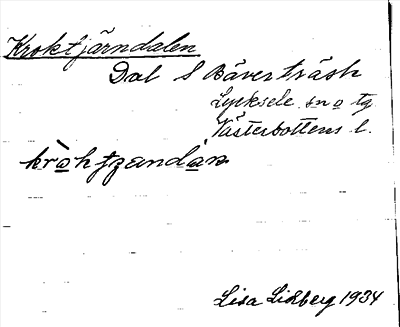 Kroktjärndalen
Dal S Bäverträsk
Lycksele sn o tg
Västerbottens l.
kròktzandàn
Lisa Lidberg 1934